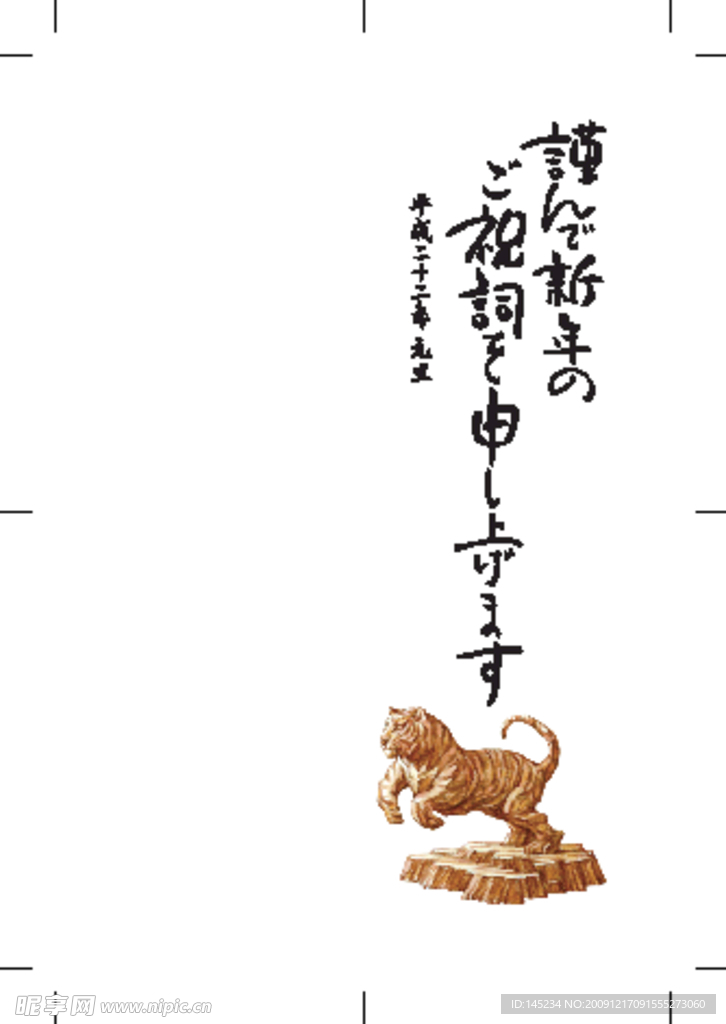 謹んで新年の
ご祝詞を申し上げます
平成二十二年 元旦
昵享网 www.nipic.cn
ID:145234 NO:20091217091555273060